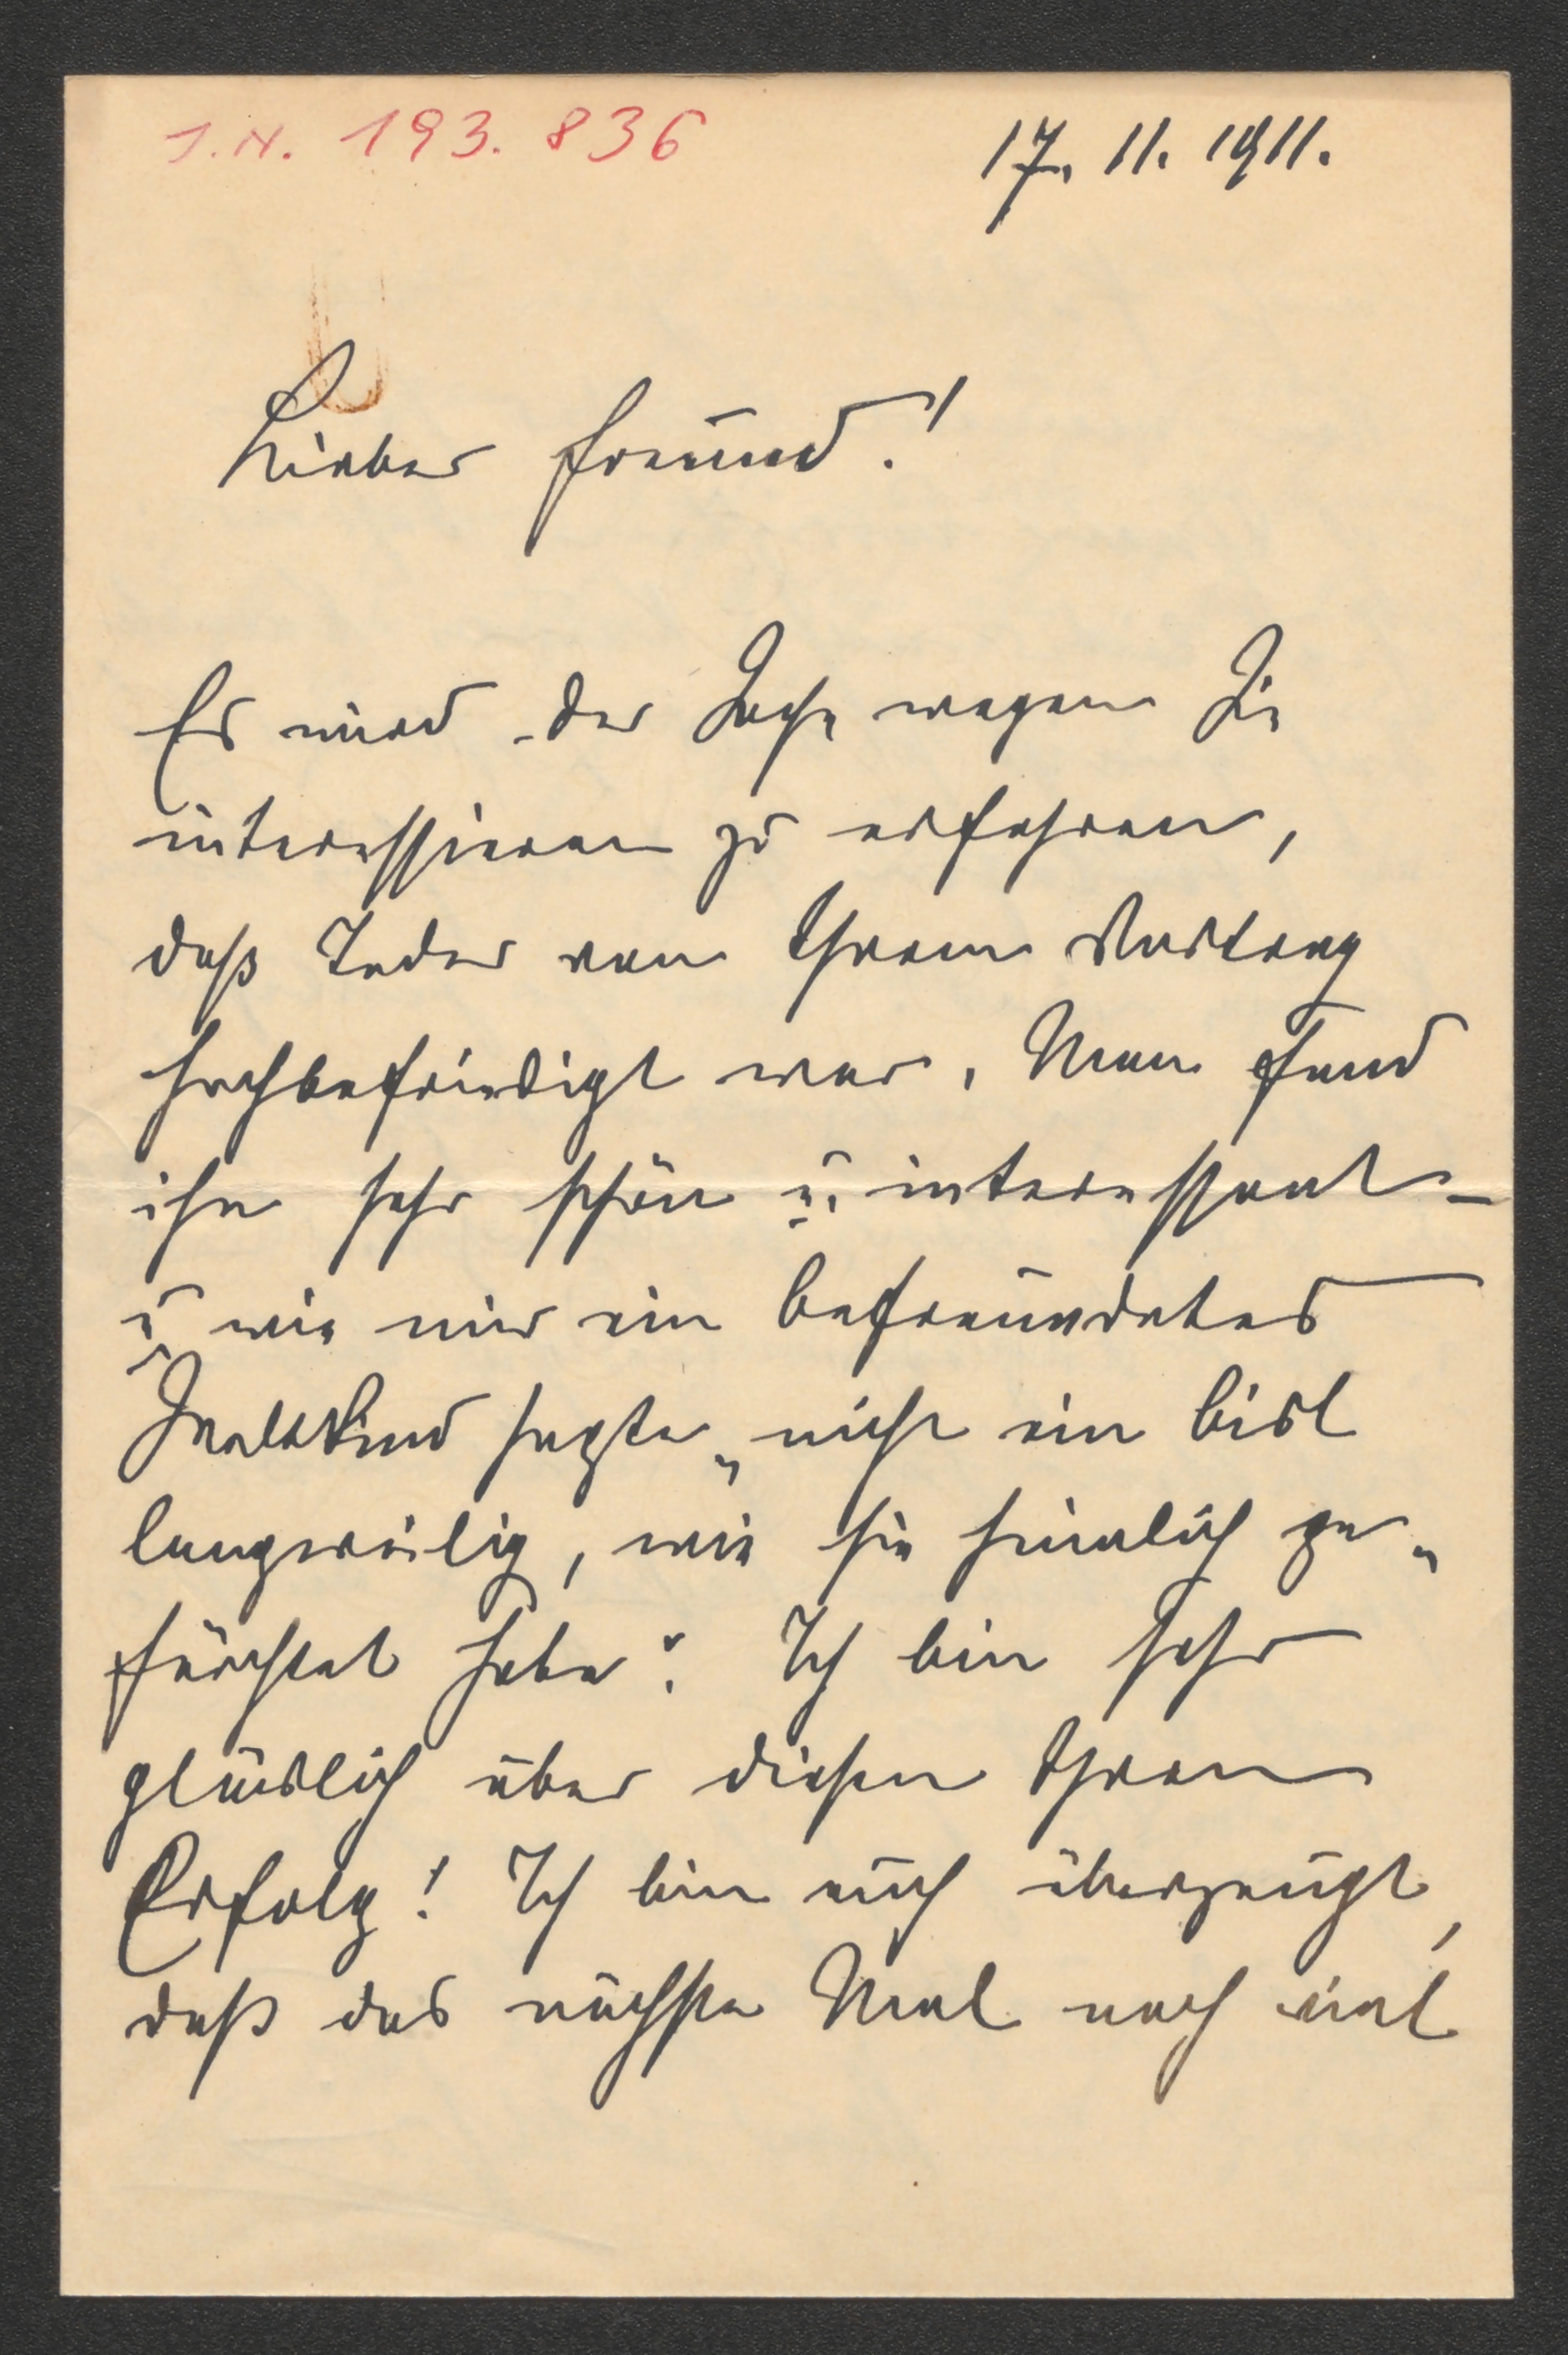 I.N. 193.836
17. 11. 1911.
Lieber Freund!
Es wird der Sache wegen Sie
interessieren zu erfahren,
daß Jeder von Ihrem Vortrag
hochbefriedigt war. Man fand
ihn sehr schön u. interessant –
u wie mir ein befreundetes
Weltkind sagte „nicht ein bisl
langweilig, wie sie heimlich ge„
fürchtet habe“. Ich bin sehr
glücklich über diesen Ihren
Erfolg! Ich bin auch überzeugt,
daß das nächste Mal noch viel